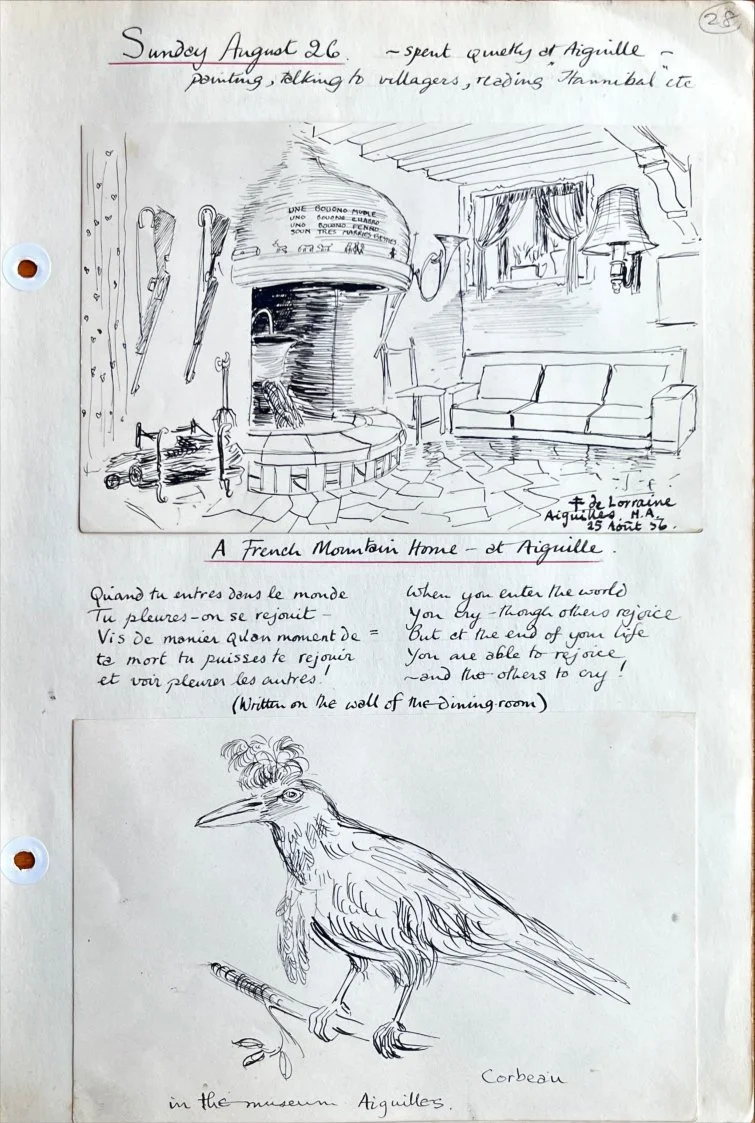 28
Sunday August 26. ~ spent quietly at Aiguille ~
painting, talking to villagers, reading "Hannibal" etc
UNE BOUONO MUOLE
UNO BOUONO CHABRO
UNO BOUONO FENNO
SOUN TRES MARRIES BETIES
‡ de Lorraine
Aiguilles H.A.
25 Août 56.
A French Mountain Home – at Aiguille.
Quand tu entres dans le monde
Tu pleures – on se rejouit –
Vis de manier qu'an moment de =
ta mort tu puisses te rejouir
et voir pleurer les autres!
When you enter the world
You cry – though others rejoice
But at the end of your life
You are able to rejoice
~ and the others to cry!
(Written on the wall of the dining-room)
Corbeau
in the museum Aiguilles.